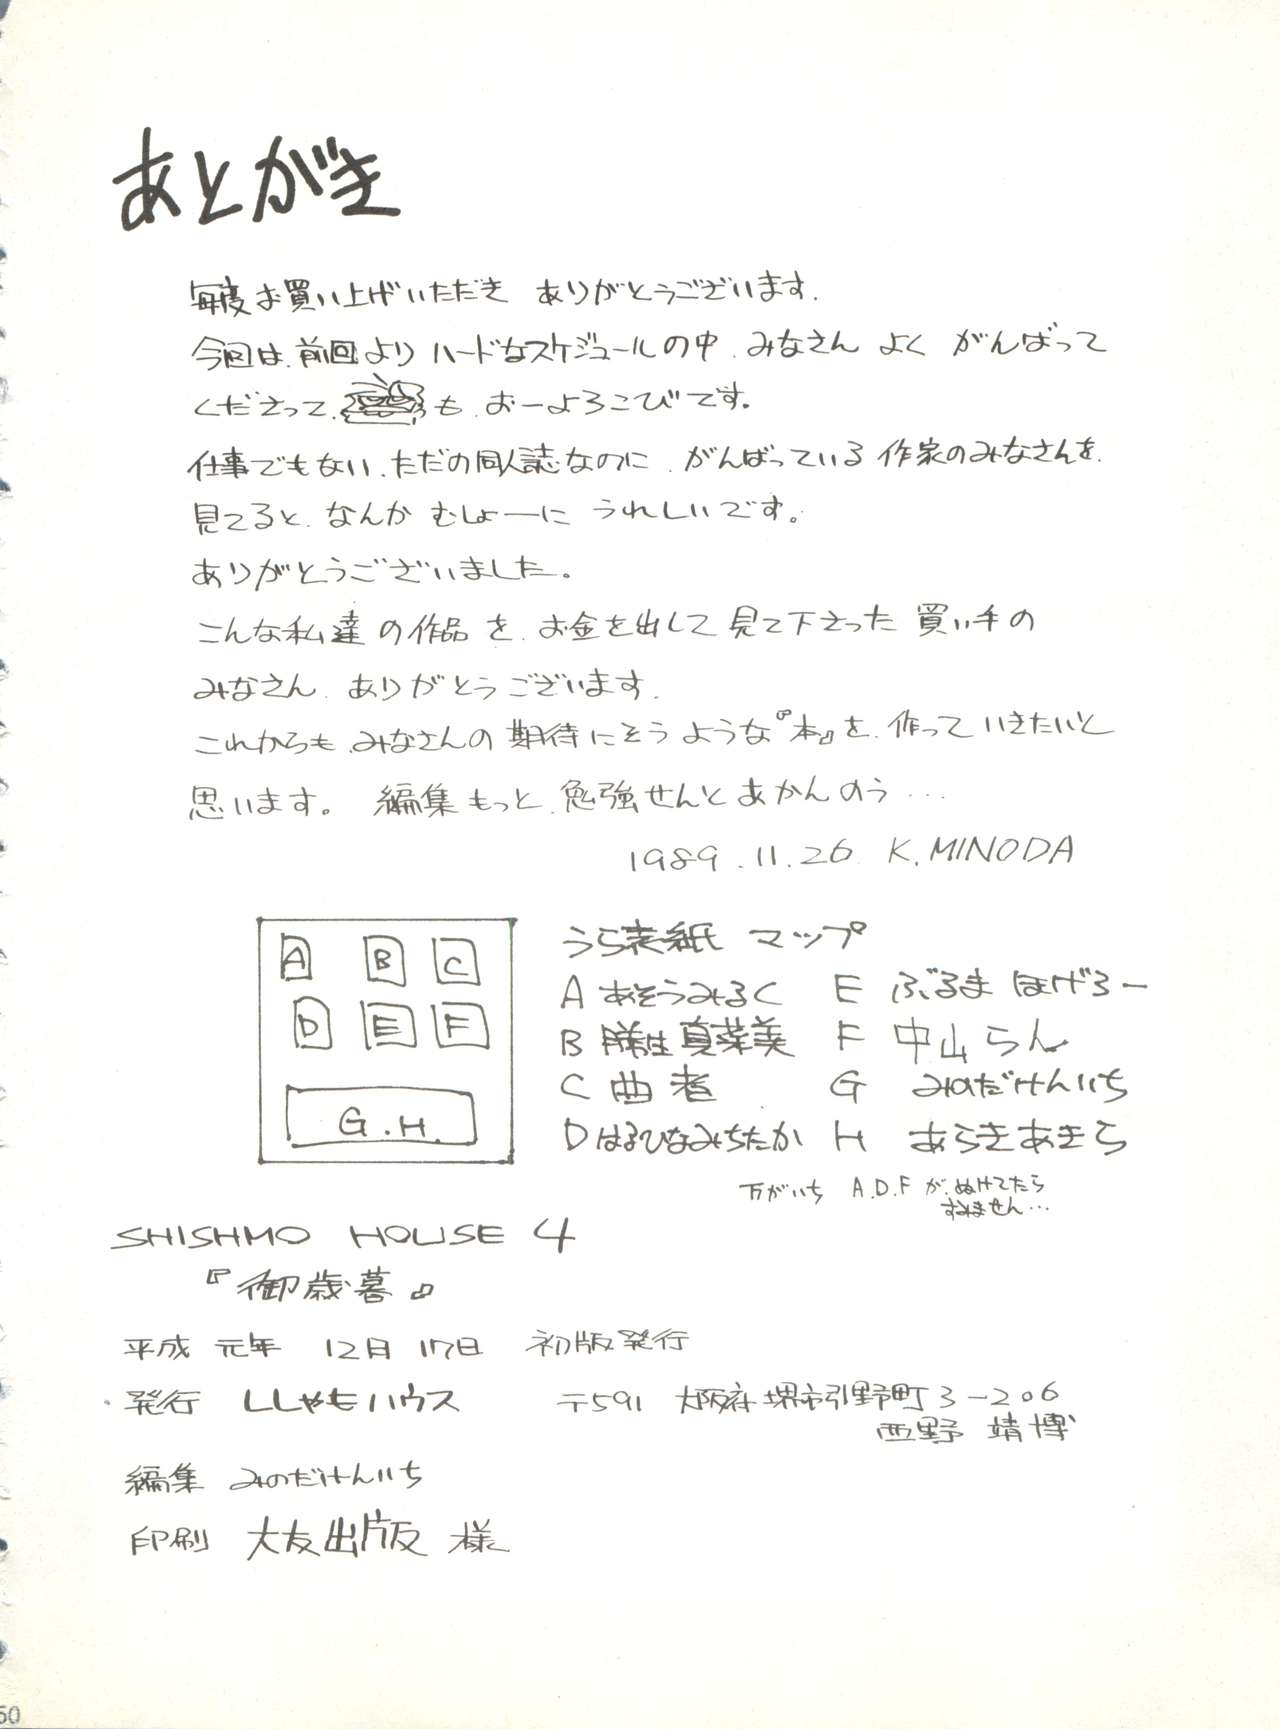 あとがき
毎度お買い上げいただき ありがとうございます.
今回は.前回より ハードなスケジュールの中.みなさん よく がんばって
くださって. も.おーよろこびです。
仕事でもない.ただの同人誌なのに.がんばっている 作家のみなさんを.
見てると.なんか むしょーに うれしいです。
ありがとうございました。
こんな私達の作品を.お金を出して見て下さった 買い手の
みなさん.ありがとうございます.
これからも.みなさんの期待にそうような『本』を.作っていきたいと
思います。 編集もっと.勉強せんとあかんのう…
1989.11.26 K.MINODA
A B C
D E F
G.H.
うら表紙 マップ
A あそうみるく E ぶるま ほげろー
B 勝生真菜美 F 中山らん
C 曲者 G みのだけんいち
D はるひなみちたか H あらきあきら
万がいち A.D.F が.ぬけてたら
すみません…
SHISHMO HOUSE 4
『御歳暮』
平成 元年 12月 17日 初版発行
発行 ししゃもハウス 〒591 大阪府堺市引野町3-206
西野 靖博
編集 みのだけんいち
印刷 大友出版 様
50